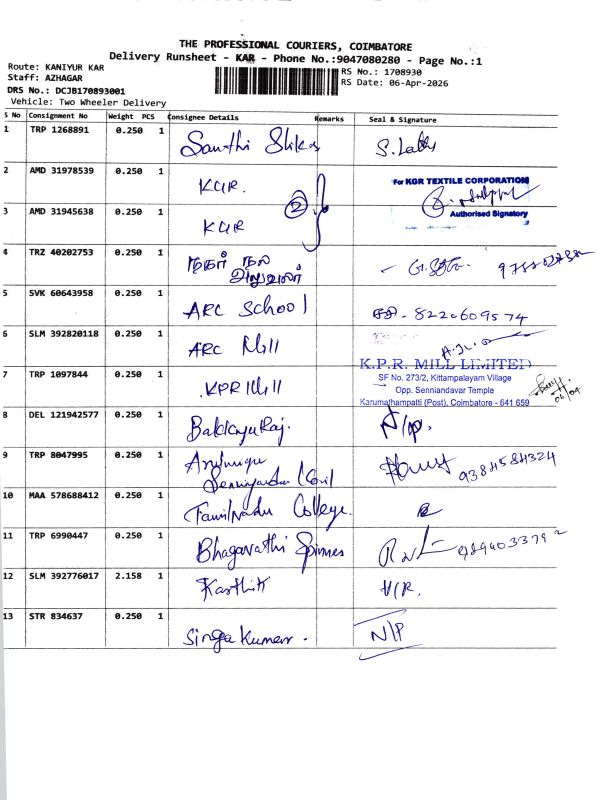 THE PROFESSIONAL COURIERS, COIMBATORE
Delivery Runsheet - KAR - Phone No.:9047080280 - Page No.:1
Route: KANIYUR KAR
Staff: AZHAGAR
DRS No.: DCJB170893001
Vehicle: Two Wheeler Delivery
RS No.: 1708930
RS Date: 06-Apr-2026
S No Consignment No Weight PCS Consignee Details Remarks Seal & Signature
1 TRP 1268891 0.250 1
2 AMD 31978539 0.250 1 KGR. 2 For KGR TEXTILE CORPORATION
3 AMD 31945638 0.250 1 KGR Authorised Signatory
4 TRZ 40202753 0.250 1
5 SVK 60643958 0.250 1 ARC School 8220609574
6 SLM 392820118 0.250 1 ARC Mill
7 TRP 1097844 0.250 1 KPR Mill K.P.R. MILL LIMITED
SF No. 273/2, Kittampalayam Village
Opp. Senniandavar Temple
Karumathampatti (Post), Coimbatore - 641 659
06/04
8 DEL 121942577 0.250 1 N/P.
9 TRP 8047995 0.250 1 9384584324
10 MAA 578688412 0.250 1 Tamilnadu College.
11 TRP 6990447 0.250 1 Bhagavathi Spinners
12 SLM 392776017 2.158 1 Karthik
13 STR 834637 0.250 1 Singakumar. N/P